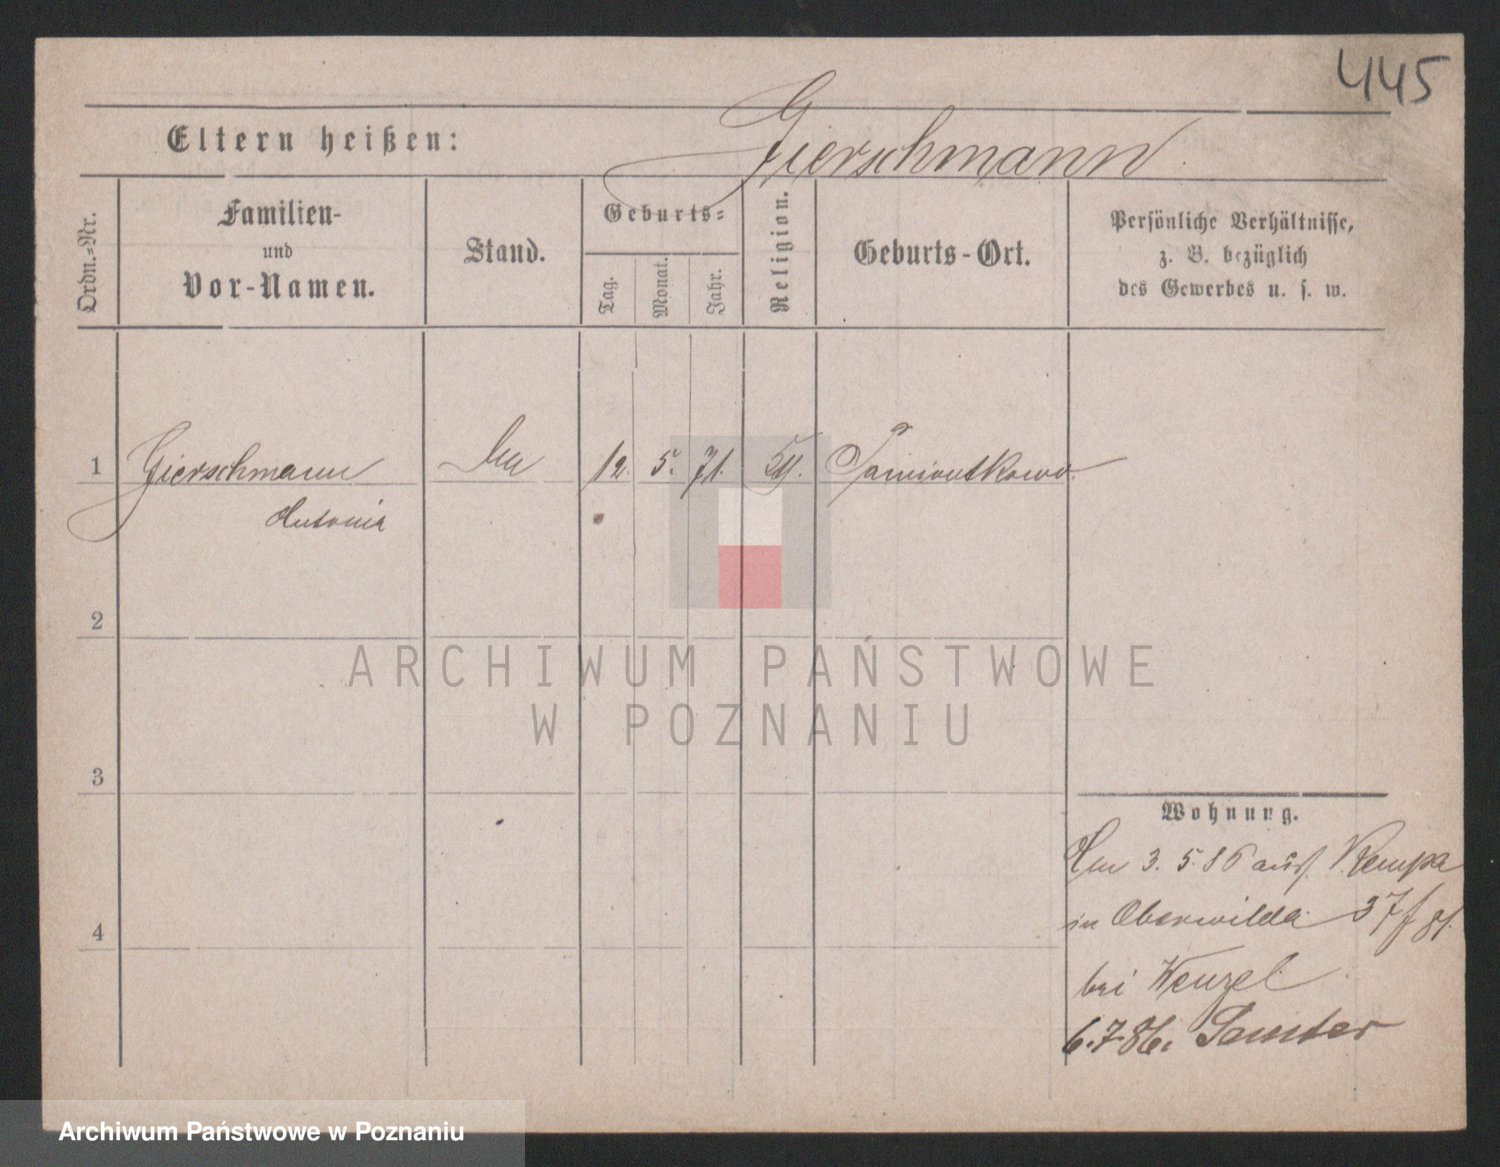 445
Eltern heißen: Gierschmann
Ordn.-Nr.
Familien-
und
Vor-Namen.
Stand.
Geburts-
Tag.
Monat.
Jahr.
Religion.
Geburts-Ort.
Persönliche Verhältnisse,
z. B. bezüglich
des Gewerbes u. s. w.
1 Gierschmann 12. 5. 71.
Antonia
2
ARCHIWUM PAŃSTWOWE
W POZNANIU
3
Wohnung.
3. 5. 86 Kempa
4
in Oberwilda 37
bei Wenzel
6.7.86. Samter
Archiwum Państwowe w Poznaniu